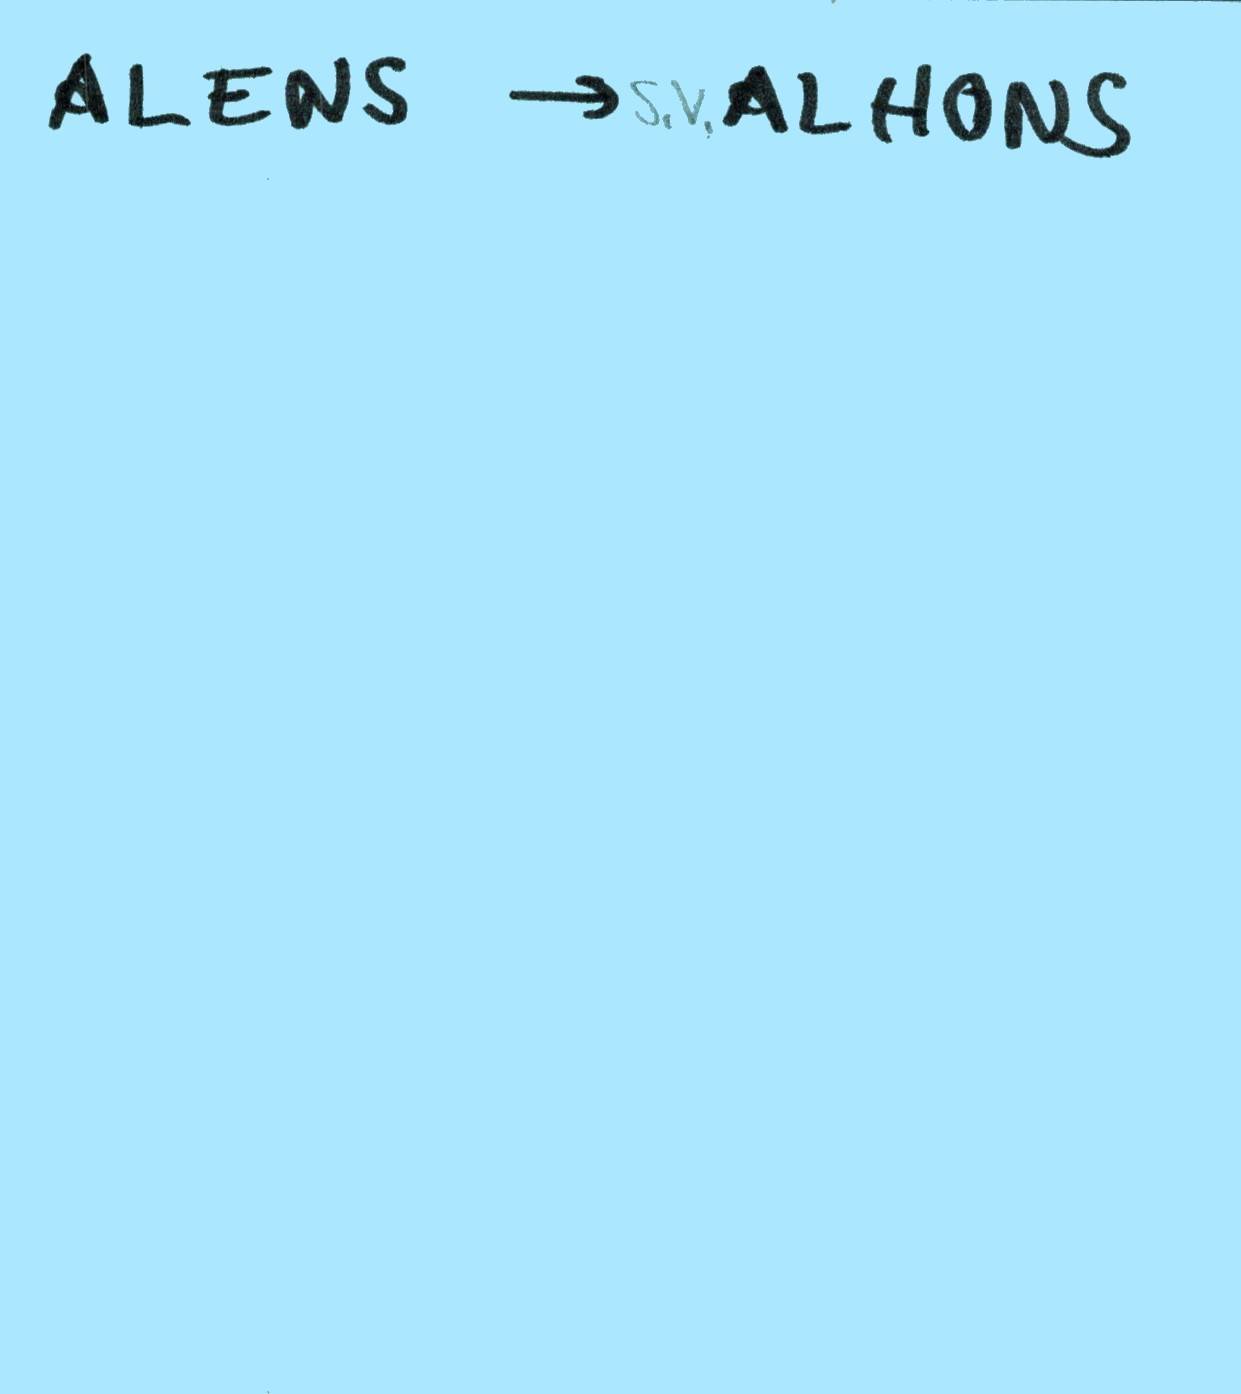 ALENS → S.V. ALHONS